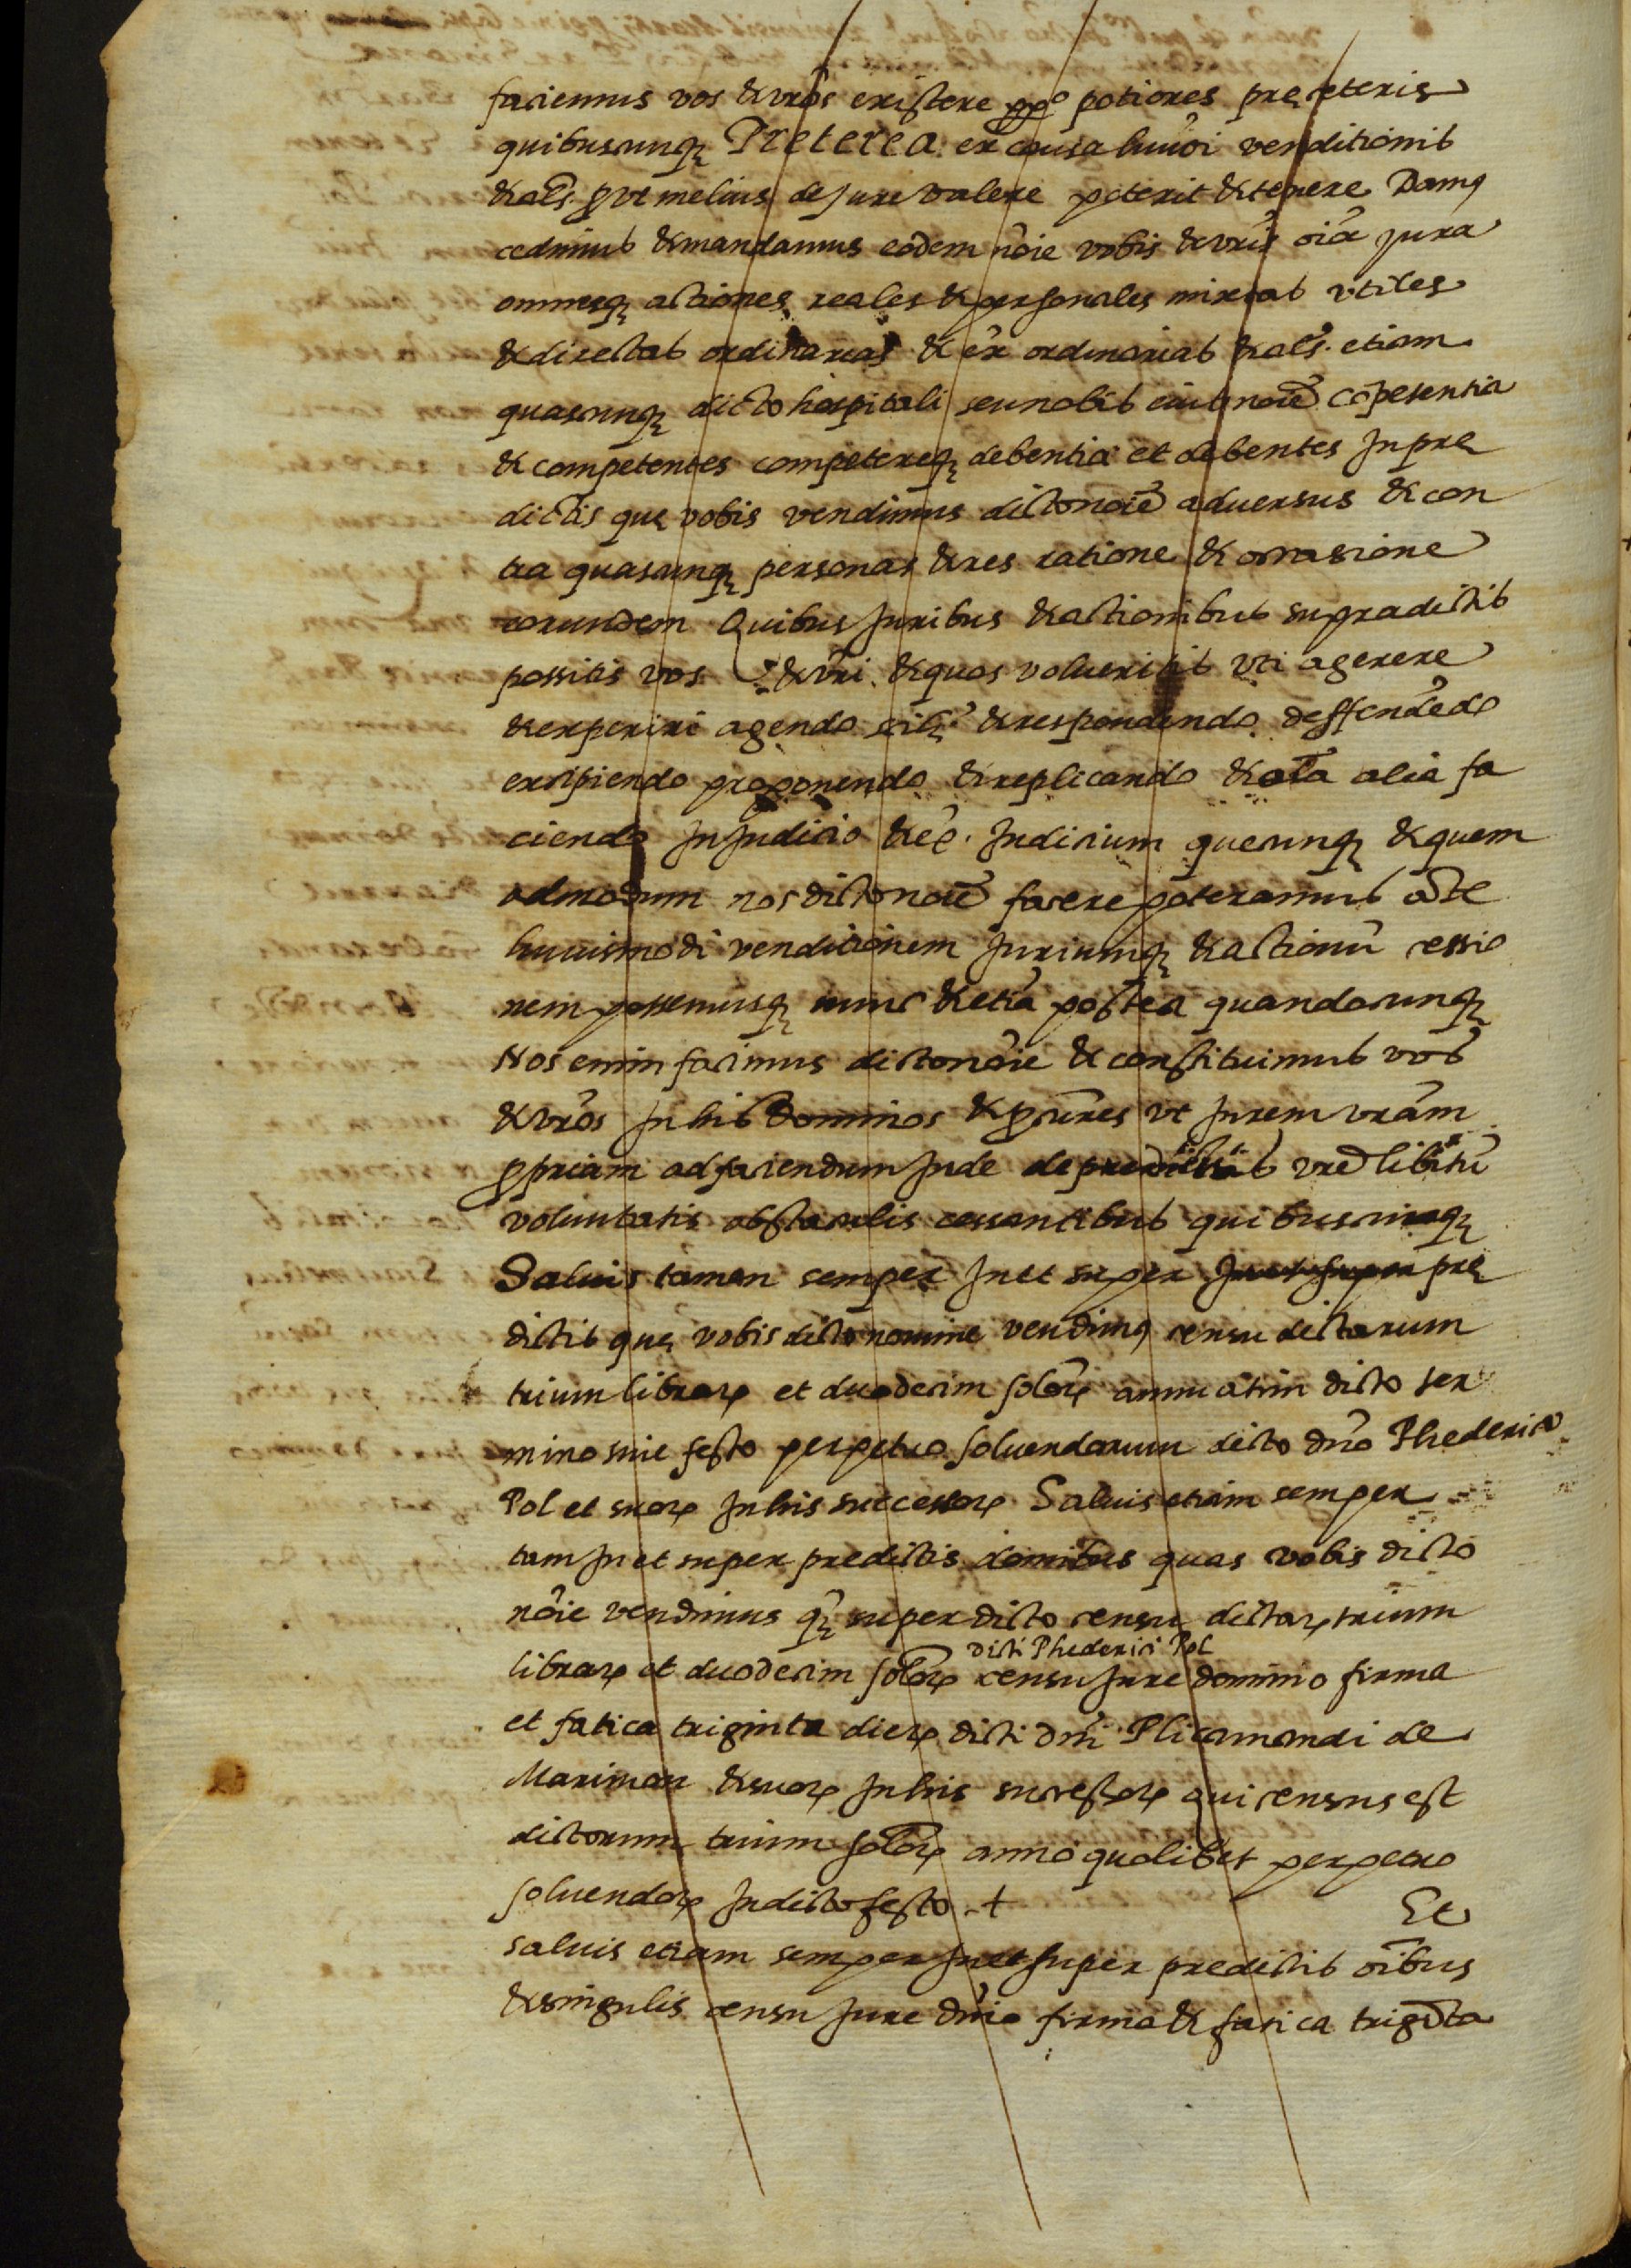 faciemus vos & vr̃os existere ꝑpo potiores pre ceteris
quibuscunqȝ Preterea ex causa huiꝰi venditionis
& als̃. ꝓut melius de Jure valere poterit & tenere Damꝰ
cedimus & mandamus eodem nõie vobis & vr̃is oĩa jura
omnesqȝ actiones reales & personales mixtas vtiles
& directas ordinarias & ex̃ ordinarias & als̃. etiam
quascunqȝ dicto hospitali seu nobis eius noĩe cõpetentia
& competentes competereqȝ debentia et debentes Jn prę
dictis quę vobis vendimus dicto noĩe aduersus & con
tra quascunqȝ personas & res ratione & occasione
eorundem Quibus Juribus & actionibus supradictis
possitis vos & vr̃i & quos volueritis vti agerere
& experiri agendo scilꝫ & respondendo deffendẽdo
excipiendo proponendo & replicando & oĩa alia fa
ciendo Jn Judicio & ex̃. Judicium quecunqȝ & quem
admodum nos dicto noĩe facere poteramus ãte
huiusmodi venditionem Juriumqȝ & actionũ cessio
nem possemusqȝ nunc & etiã postea quandocunqȝ
Nos enim facimus dicto nõie & constituimus vos
& vr̃os Jn his dominos & ꝓcũres vt Jn rem vrãm
ꝓpriam ad faciendum Jnde de predictis vrẽ libitũ
voluntatis obstaculis cessantibus quibuscunqȝ
Saluis tamen semper Jn et super Jn et super prę
dictis quę vobis dicto nomine vendimꝰ censu dictarum
trium librarꝝ et duodecim solõꝝ annuatim dicto ter
mino siue festo perpetuo soluendarum dicto dño Phederico
Pol et suorꝝ Jn his successorꝝ Saluis etiam semper
tam Jn et super predictis domibus quas vobis dicto
nõie vendimus qȝ̃ super dicto censu dictarꝝ trium
dicti Phederici Pol
librarꝝ et duodecim solõꝝ censu Jure dominio firma
et fatica triginta dierꝝ dicti dñi Plicamandi de
Mariman & suorꝝ Jn his successorꝝ qui census est
dictorum trium solõꝝ anno quolibet perpetuo
soluendorꝝ Jn dicto festo + Et
saluis etiam semper Jn et super predictis oĩbus
& singulis censu Jure dñio firma & fatica trigĩta